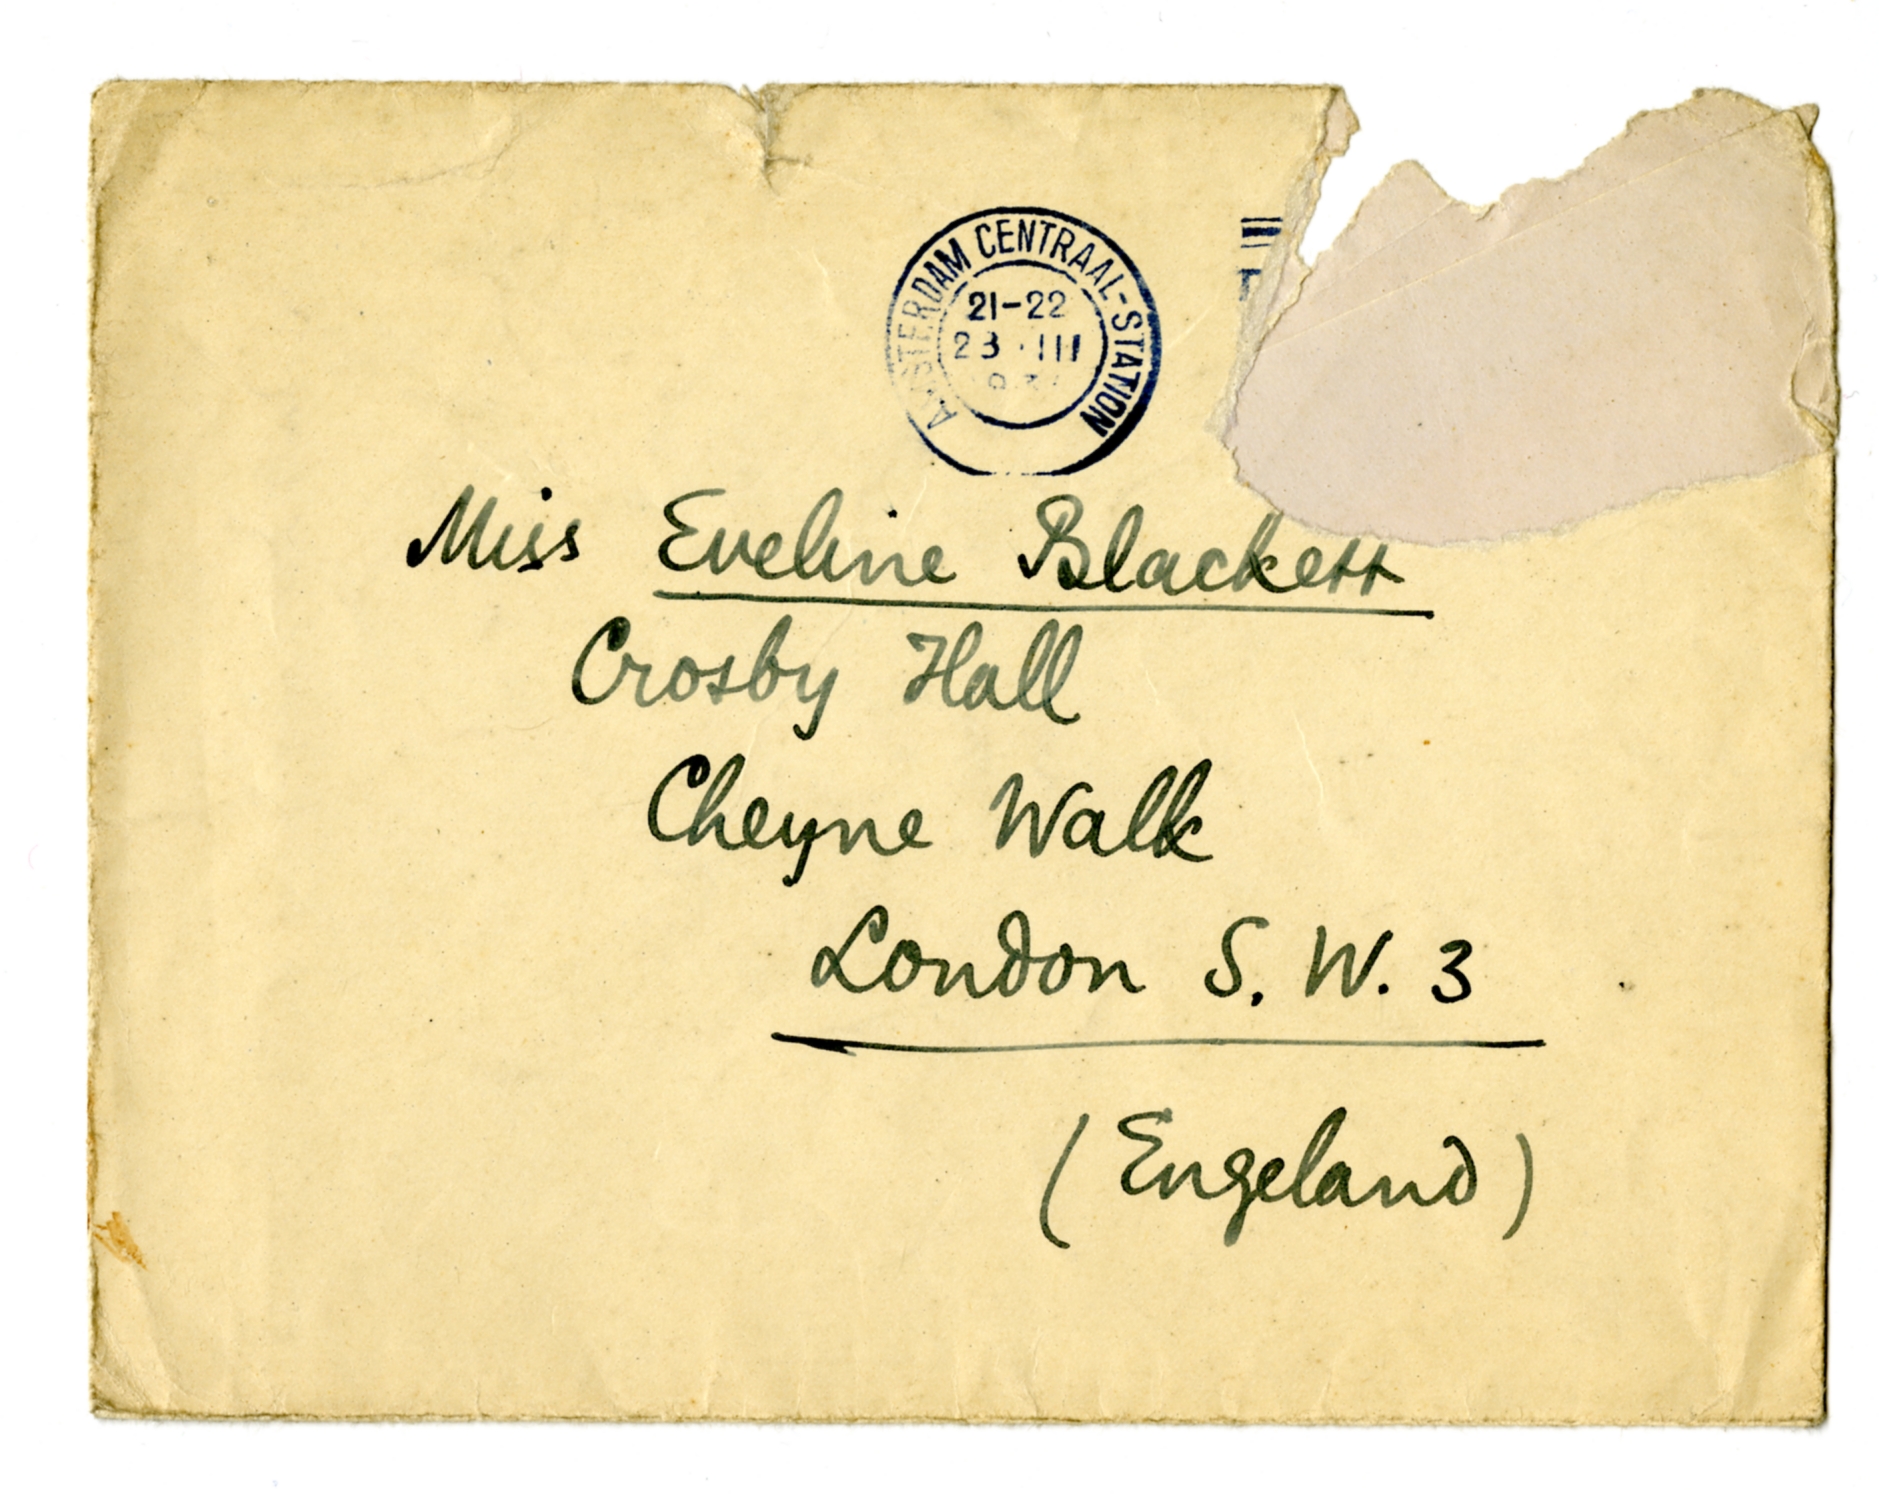 AMSTERDAM CENTRAAL-STATION
21-22
III
Miss Eveline Blackett
Crosby Hall
Cheyne Walk
London S. W. 3
(Engeland)